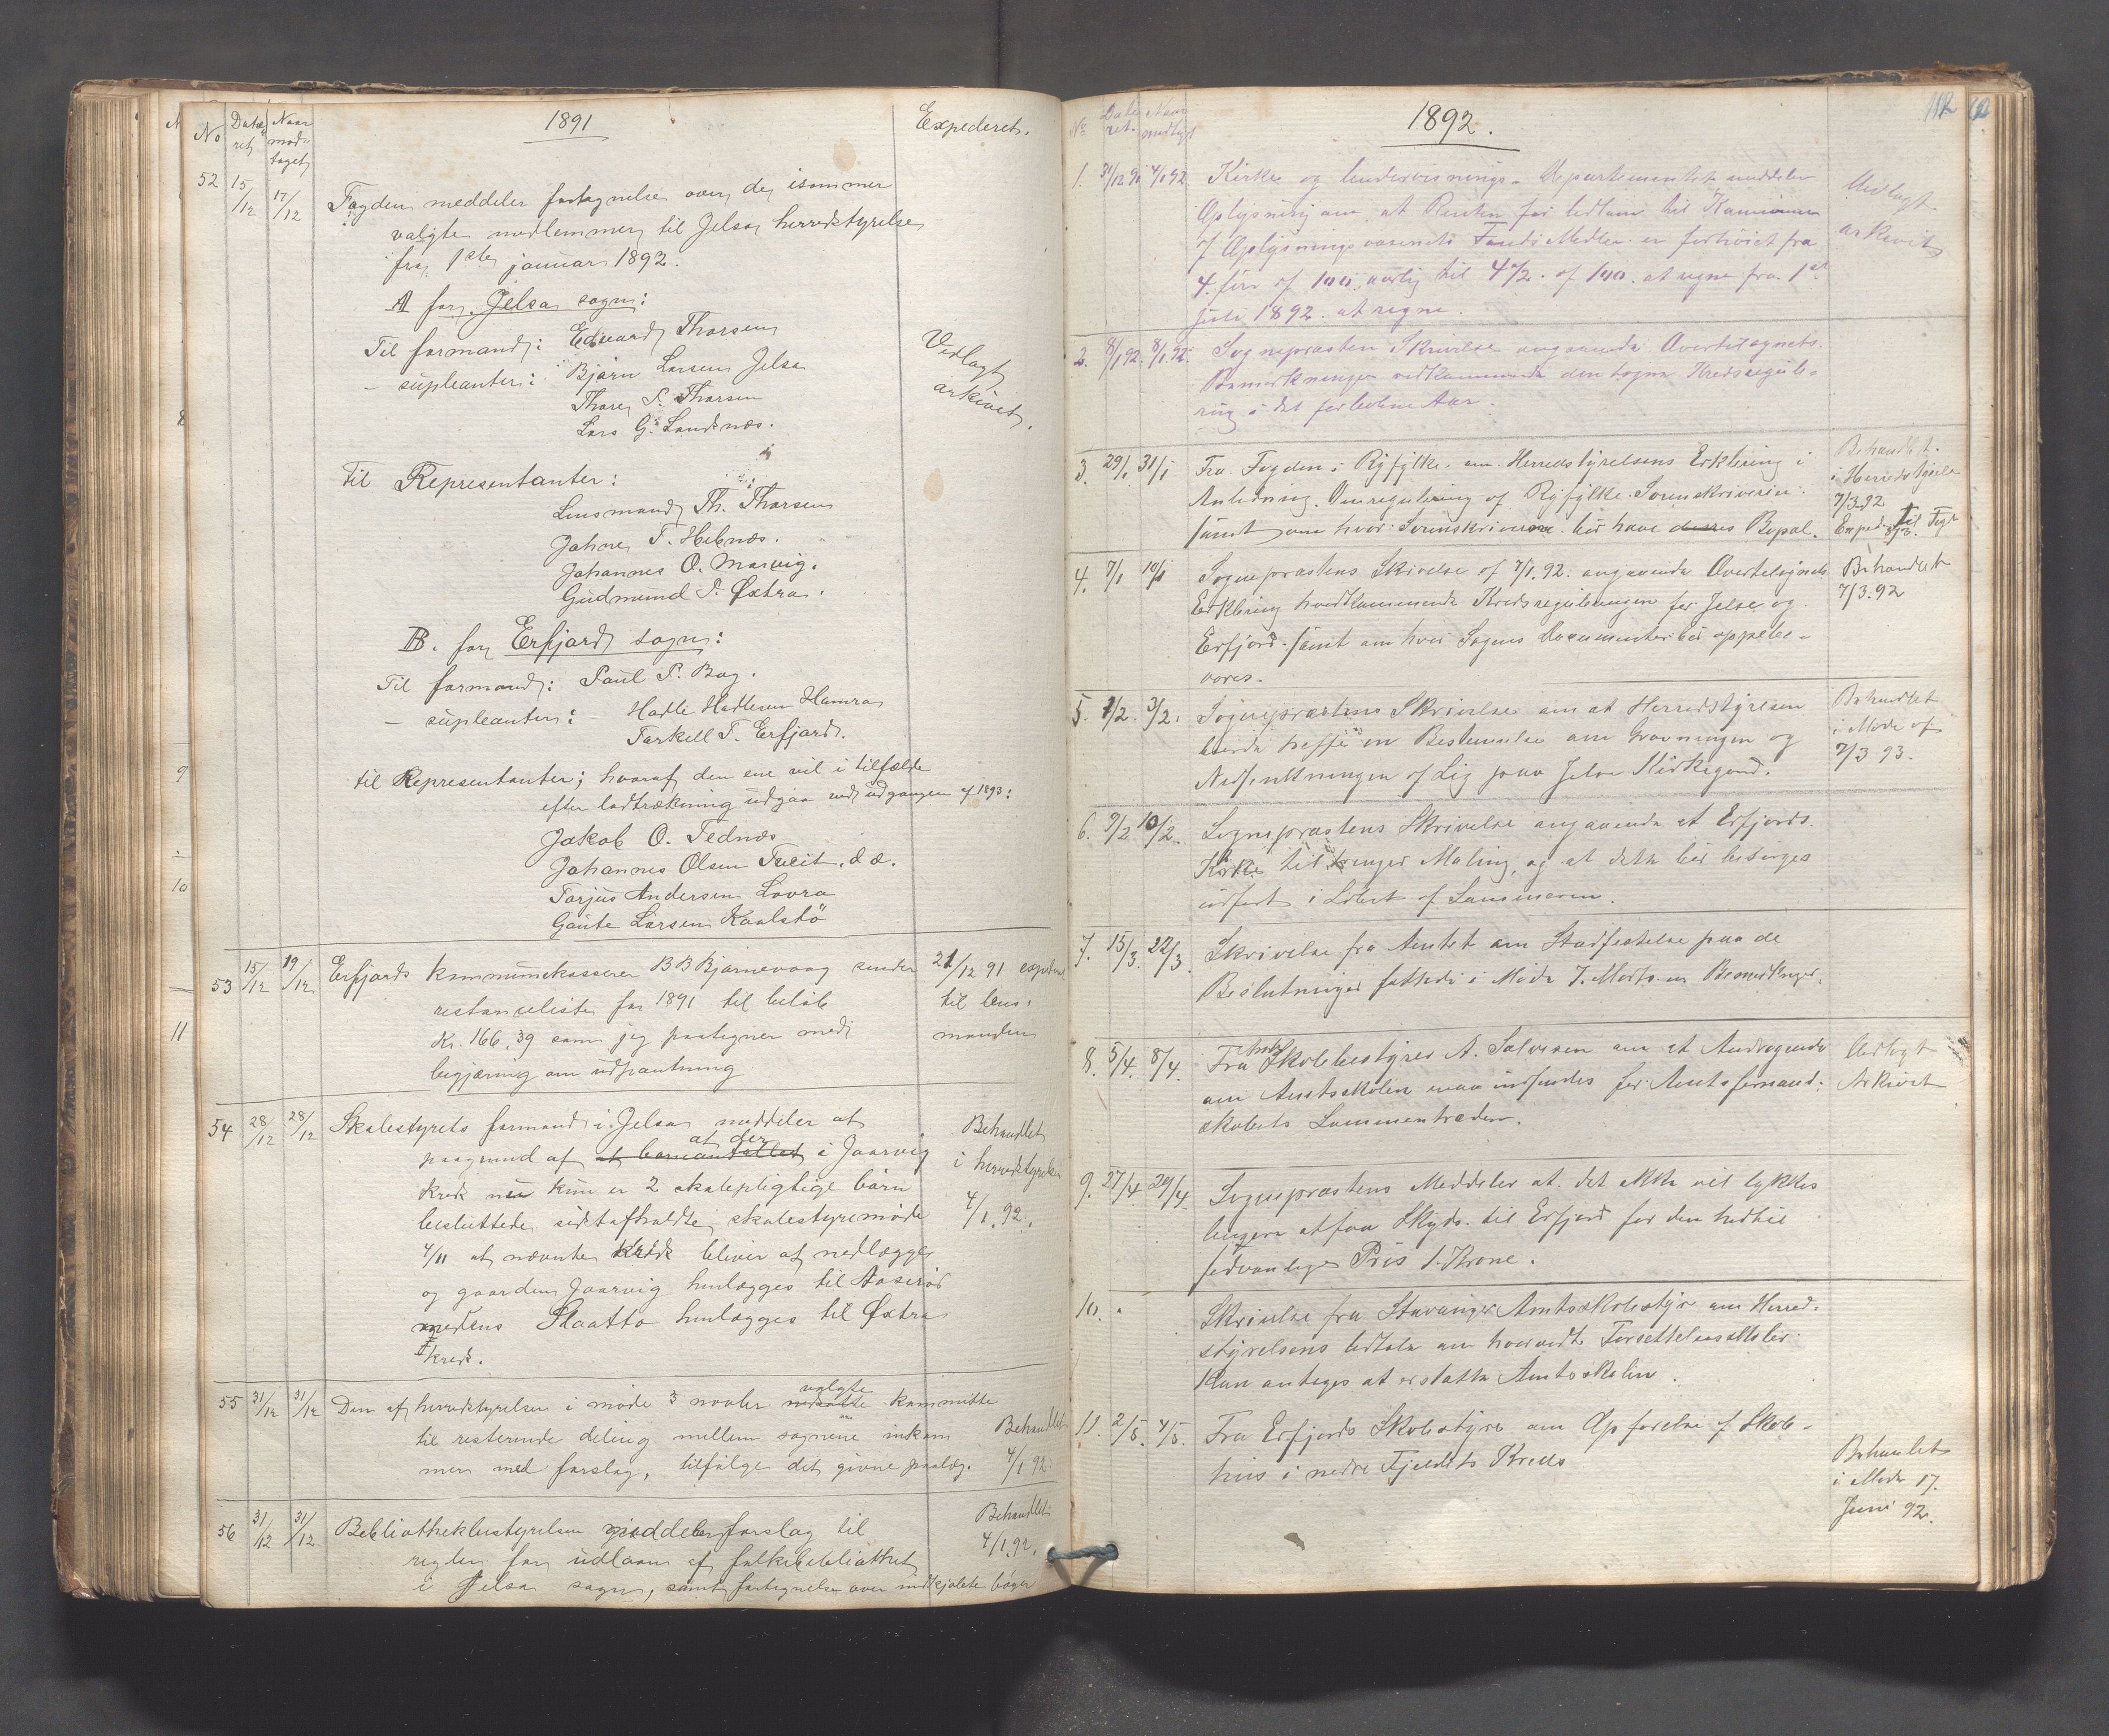 No Datee ret Naar mod- taget 1891 Expederet.
52 15/12 17/12 Fogden meddeler fortegnelse over de isommer
valgte medlemmer til Jelsa herredstyrelse
fra 1ste januar 1892.
A for Jelsa sogn:
Til formand: Edvard Thorsen
– supleanter: Bjørn Larsen Jelsa
Thore S. Thorsen
Lars G. Landsnæs.
Vedlagt
arkivet.
Til Representanter:
Lensmand Th. Thorsen
Johannes O. Marvig.
Gudmund P. Øxtra.
B. for Erfjord sogn:
Til formand: Paul P. Bog.
– supleanter: Hadle Hadlesen Hamra
Torkell T. Erfjord.
til Representanter; hvoraf den ene vil i tilfælde
efter lodtrækning udgaa ved udgangen af 1893:
Jakob O. Tednæs
Johannes Olsen Tveit. d æ.
Torjus Andersen Lovra
Gaute Larsen Kaalstö
53 15/12 19/12 Erfjords kommunekasserer B B Bjørnevaag sender 21/12 91 exped
restanseliste for 1891 til beløb til lens-
Kr. 166,39 som jeg paategner med manden
begjæring om udpantning
54 28/12 28/12 Skolestyrets formand i Jelsa meddeler at Behandlet
paagrund af at der i Jaarvig i herredstyrelsen
kreds nu kun er 2 skolepligtige børn 4/1.92.
besluttede sidst afholdte skolestyremøde
4/11 at nævnte kreds bliver at nedlægge
og gaarden Jaarvig henlægges til
medens henlægges til Øxtra
kreds.
55 31/12 31/12 Den af herredstyrelsen i møde 3 novbr valgte kommitte Behandlet
til resterende deling mellem sognene inkom 4/1 92.
mer med forslag, tilfølge det givne paalæg.
56 31/12 31/12 Bibliothekbestyrelsen meddeler forslag til Behandlet
regler for udlaan af folkebibliothet 4/1.92.
i Jelsa sogn, samt fortegnelse over indkjøbte bøger
No Date ret. Naar modtaget 1892. 112
1. 31/12 91 4/1 92 Kirke og Undervisnings-Departementet meddeler Vedlagt
Oplysning om, at Renten for Udlaan til Kommuner arkivet
af Oplysningsvæsenets Fonds Midler er forhöiet fra
4. fire af 100 aarlig til 4 1/2. af 100. at regne fra 1st
Juli 1892. at regne.
2. 8/1 92. 8/1.92. Sognepræsten Skrivelse angaaende Overtilsynets.
Bemærkninger vedkommende den Sogns Kredsregule-
ring i det forløbne Aar.
3. 29/1 31/1 Fra Fogden i Ryfylke. om Herredstyrelsens Erklæring i Behandlet.
Anledning Omregulering af Ryfylke Sorenskriveri. i Herredstyrelse 7/3.92
samt om hvor Sorenskriveren bör have Bopæl. Exped. til Fogd
4. 7/1 10/1 Sognepræstens Skivelse af 7/1.92. angaaende Overtilsynets Behandlet
Erklæring hvedkommende Kredsreguleringen for Jelse og 7/3.92
Erfjord. samt om hvor Sognes Documenter bör oppebe-
vares.
5. 1/2. 3/2. Sognepræstens Skrivelse om at Herredstyrelsen Behandlet
burde treffe en Bestemmelse om Gravningen og i Möde af
Nedsenkningen af Lig paa Jelse Kirkegaard. 7/3 93.
6. 9/2 10/2. Sognepræstens Skrivelse angaaende at Erfjords.
Kirke til trenger Maling, og at dette bör besörges
udfört i Löbet af Sommeren.
7. 15/3. 22/3. Skrivelse fra Amtet om Stadfestelse paa de
Beslutninger fattede i Möde 7. Marts Brændevins
8. 5/4. 8/4. Fra Amts Skolebestyrer A. Salvesen om at Andragende Vedlagt
om Amtsskolen maa indsendes för Amtsformand- Arkivet
skabets Sammentræden.
9. 27/4 29/4. Sognepræstens Meddeler at det ikke vil lykkes
lengere at faa Skyds til Erfjord for den hidtil
sedvanlige Pris 1. Krone.
10. Skrivelse fra Stavanger Amtsskolestyre om Herred-
styrelsens Udtalelse om hvorvidt Forsettelsesskoler
kan antages at erstatte Amtsskolen.
11. 2/5. 4/5. Fra Erfjords Skolestyre om Opförelse af Skole-
hus i nedre Fjeldets Kreds
Behanlet
i Möde 17.
Juni 92.
9
10
11